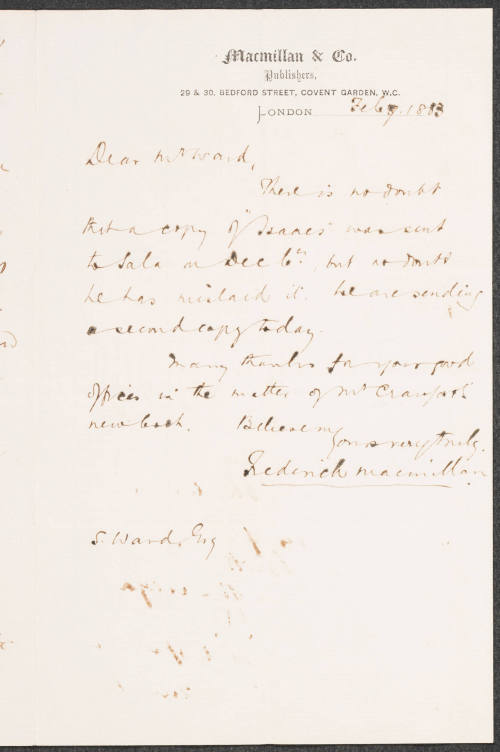 Macmillan & Co.
Publishers,
29 & 30. BEDFORD STREET, COVENT GARDEN, W.C.
LONDON Feb 9. 1883
Dear Mr Ward,
There is no doubt
that a copy of "Isaacs" was sent
to Sala on Dec 6th, but no doubt
he has mislaid it. We are sending
a second copy today.
Many thanks for your good
offices in the matter of Mr Crawford's
new book. Believe me
yours very truly.
Frederick Macmillan
S. Ward, Esq